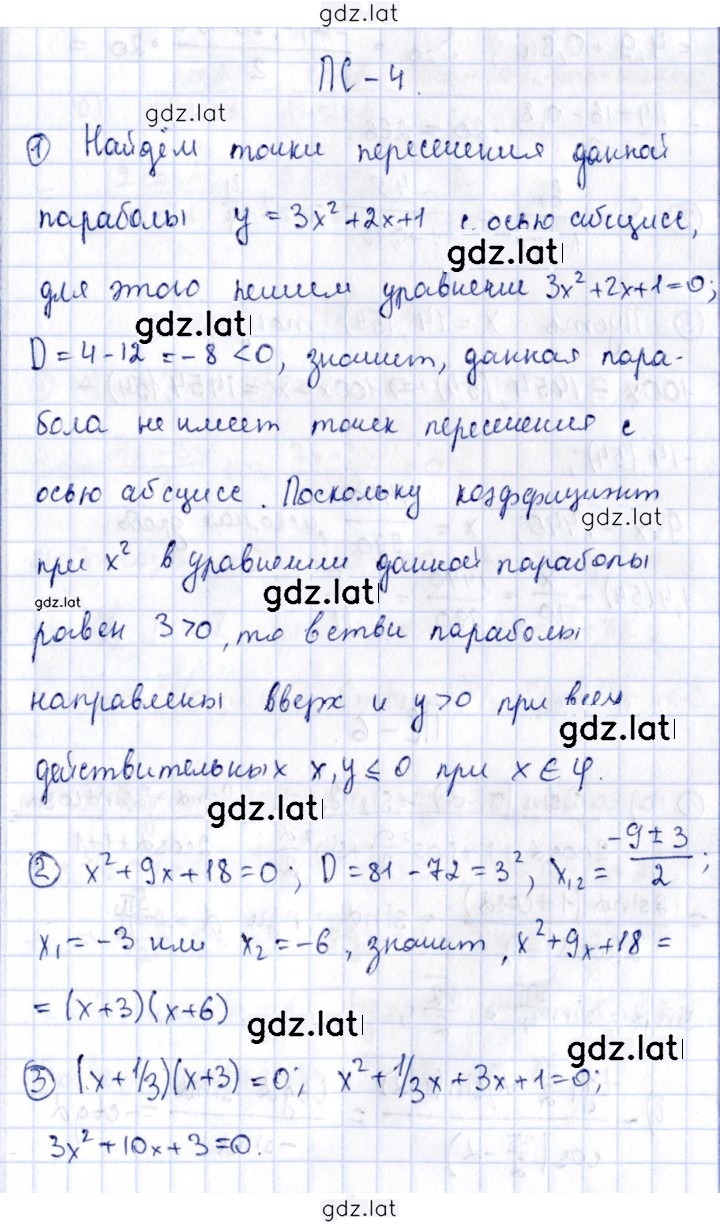 gdz.lat
ПС - 4.
gdz.lat
① Найдём точки пересечения данной
параболы y = 3x² + 2x + 1 с осью абсцисс,
gdz.lat
для этого решим уравнение 3x² + 2x + 1 = 0;
gdz.lat
D = 4 - 12 = - 8 < 0, значит, данная пара-
бола не имеет точек пересечения с
осью абсцисс. Поскольку коэффициент
gdz.lat
при x² в уравнении данной параболы
gdz.lat
gdz.lat
равен 3 > 0, то ветви параболы
направлены вверх и y > 0 при всех
gdz.lat
действительных x, y ≤ 0 при x ∈ φ.
gdz.lat
② x² + 9x + 18 = 0; D = 81 - 72 = 3², x₁,₂ = (-9 ± 3)/2;
x₁ = -3 или x₂ = -6, значит, x² + 9x + 18 =
= (x + 3)(x + 6)
gdz.lat
gdz.lat
③ (x + 1/3)(x + 3) = 0; x² + 1/3x + 3x + 1 = 0;
3x² + 10x + 3 = 0.
gdz.lat